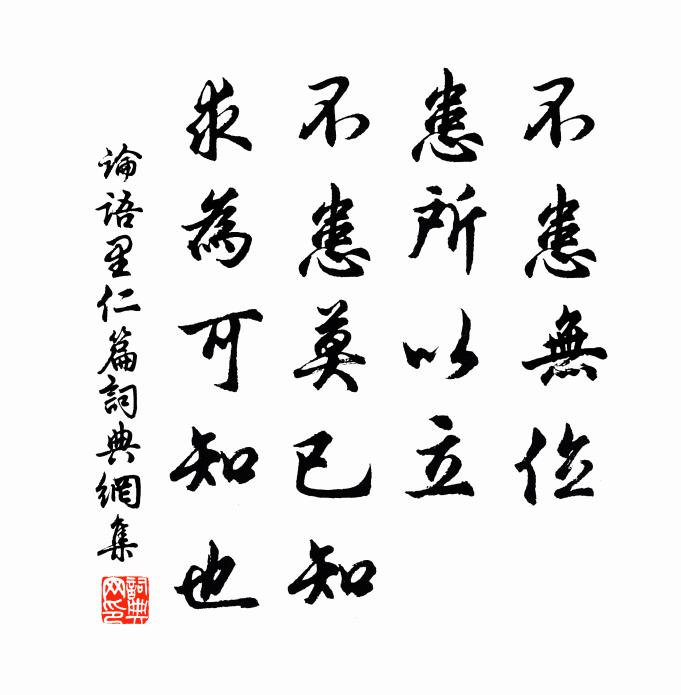 不患無位
患所以立
不患莫已知
求為可知也
論語里仁篇詞典網集
詞典網印